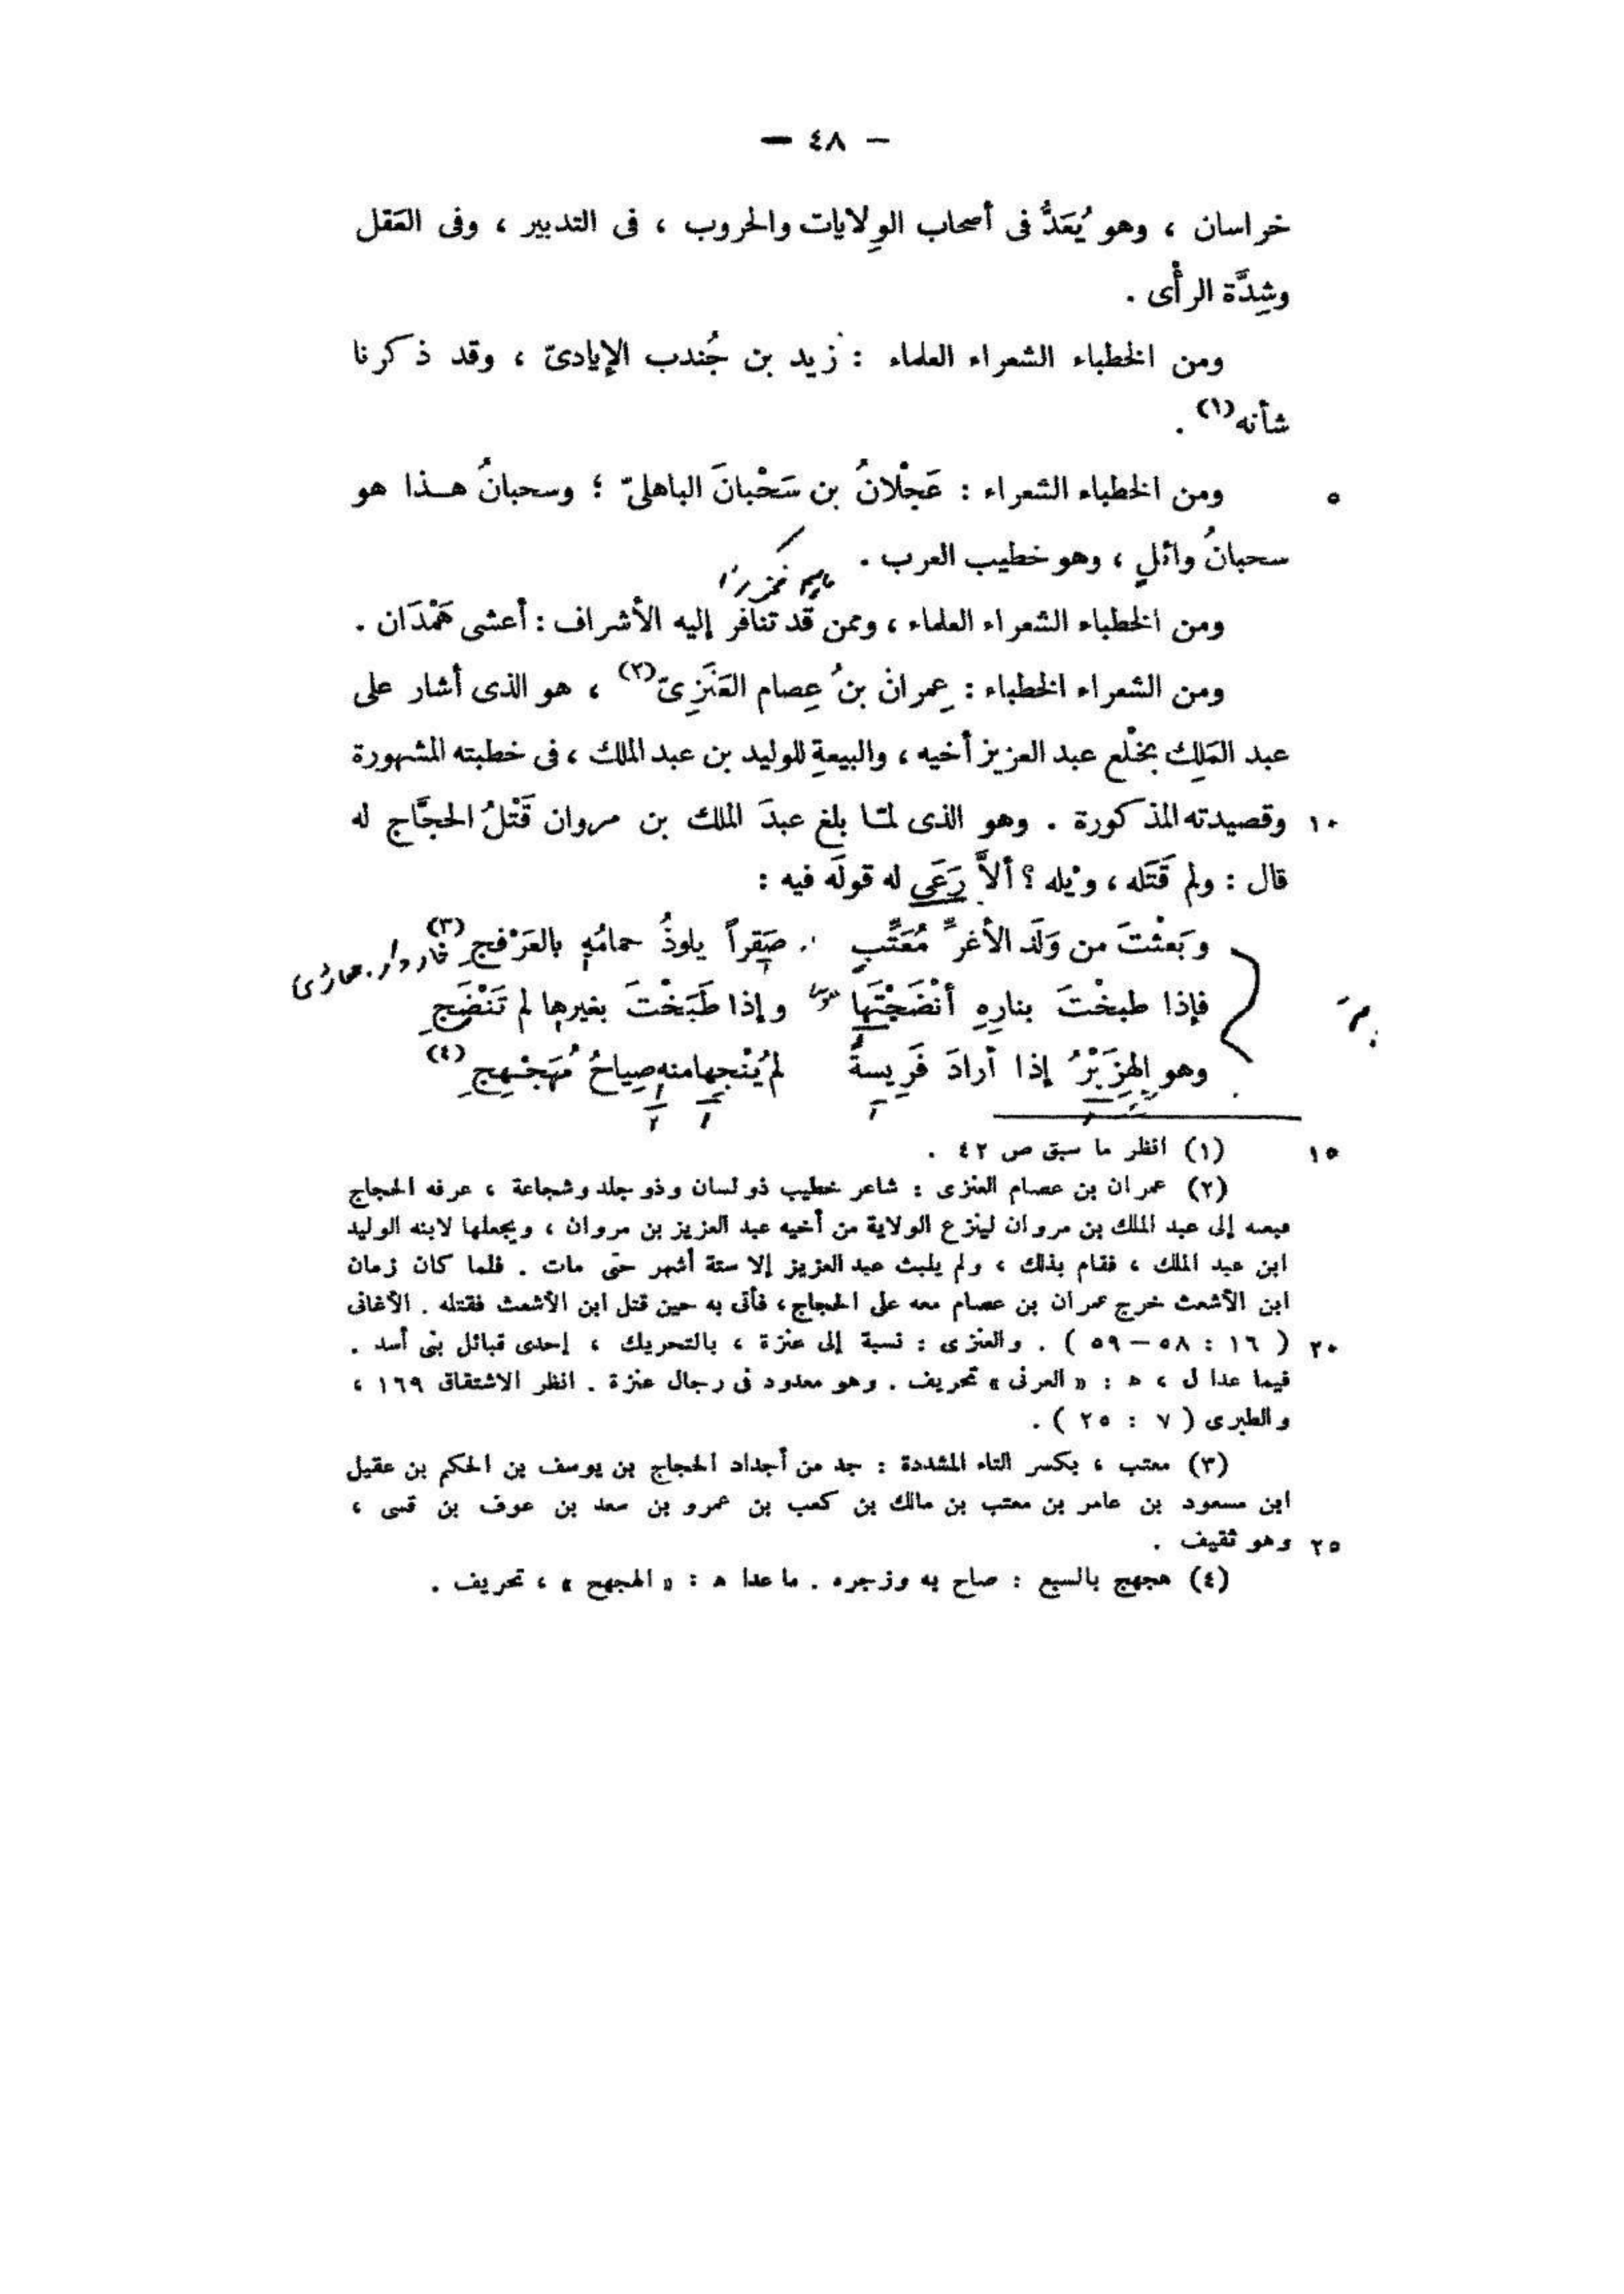 — ٤٨ —
خراسان ، وهو يُعَدُّ فى أصحاب الوِلايات والحروب ، فى التدبير ، وفى العَقل
وشِدَّة الرأْى .
ومن الخطباء الشعراء العلماء : زيد بن جُندب الإيادىّ ، وقد ذكرنا
شأنه(١) .
ومن الخطباء الشعراء : عَجْلانُ بن سَحْبانَ الباهلىّ ؛ وسحبانُ هـذا هو ٥
سحبانُ وائلٍ ، وهو خطيب العرب .
ومن الخطباء الشعراء العلماء ، وممن قد تنافر إليه الأشراف : أعشى هَمْدَان .
ومن الشعراء الخطباء : عِمرانُ بنُ عِصام العَنَزِىّ(٢) ، هو الذى أشار على
عبد المَلِك بخَلْع عبد العزيز أخيه ، والبيعةِ للوليد بن عبد الملك ، فى خطبته المشهورة
١٠ وقصيدته المذكورة . وهو الذى لمّا بلغ عبدَ الملك بن مروان قَتْلُ الحجَّاج له
قال : ولم قَتَله ، ويْله ؟ ألاَّ رَعَى له قولَه فيه :
وبَعثْتَ من وَلَد الأغرِّ مُعَتِّبٍ صَقراً يلوذُ حمامُه بالعَرْفجِ(٣)
فإذا طبخْتَ بنارِهِ أنْضَجْتَها وإذا طَبَخْتَ بغيرها لم تَنْضَجِ
وهو الهِزَبْرُ إذا أرادَ فَرِيسةً لم يُنْجِها منه صِياحُ مُهَجْهِجِ(٤)
١٥ (١) انظر ما سبق ص ٤٢ .
(٢) عمران بن عصام العنزى : شاعر خطيب ذو لسان وذو جلد وشجاعة ، عرفه الحجاج
فبعثه إلى عبد الملك بن مروان لينزع الولاية من أخيه عبد العزيز بن مروان ، ويجعلها لابنه الوليد
ابن عبد الملك ، فقام بذلك ، ولم يلبث عبد العزيز إلا ستة أشهر حتى مات . فلما كان زمان
ابن الأشعث خرج عمران بن عصام معه على الحجاج ، فأتى به حين قتل ابن الأشعث فقتله . الأغانى
٢٠ ( ١٦ : ٥٨ — ٥٩ ) . والعنزى : نسبة إلى عنزة ، بالتحريك ، إحدى قبائل بنى أسد .
فيما عدا ل ، ﻫ : « العرنى » تحريف . وهو معدود فى رجال عنزة . انظر الاشتقاق ١٦٩ ،
والطبرى ( ٧ : ٢٥ ) .
(٣) معتب ، بكسر التاء المشددة : جد من أجداد الحجاج بن يوسف بن الحكم بن عقيل
ابن مسعود بن عامر بن معتب بن مالك بن كعب بن عمرو بن سعد بن عوف بن قسى ،
٢٥ وهو ثقيف .
(٤) هجهج بالسبع : صاح به وزجره . ما عدا ﻫ : « المجهج » ، تحريف .